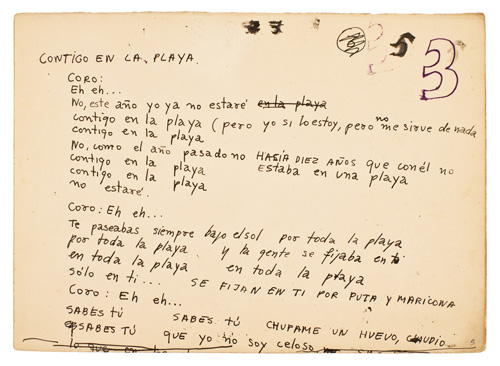 23
25 3
CONTIGO EN LA PLAYA.
CORO:
Eh eh...
No, este año yo ya no estaré en la playa
contigo en la playa (pero yo si lo estoy, pero no me sirve de nada
contigo en la playa
No, como el año pasado no HASIA DIEZ AÑOS que con él no
contigo en la playa ESTABA en una playa
contigo en la playa
no estaré.
CORO: Eh eh...
Te paseabas siempre bajo el sol por toda la playa
por toda la playa y la gente se fijaba en ti
en toda la playa en toda la playa
sólo en ti... SE FIJAN EN TI POR PUTA Y MARICONA
Coro: Eh eh...
SABES TÚ SABES TÚ CHUPAME UN HUEVO, CLAUDIO
SABES TÚ que yo no soy celoso
lo que en